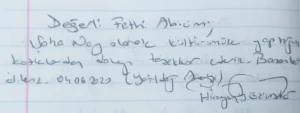 Değerli Fethi Abicim;
Yaha Way olarak kültürümüze yaptığın
katkılardan dolayı teşekkür ederiz. Başarılar
dileriz. 04.06.2020
Hüseyin